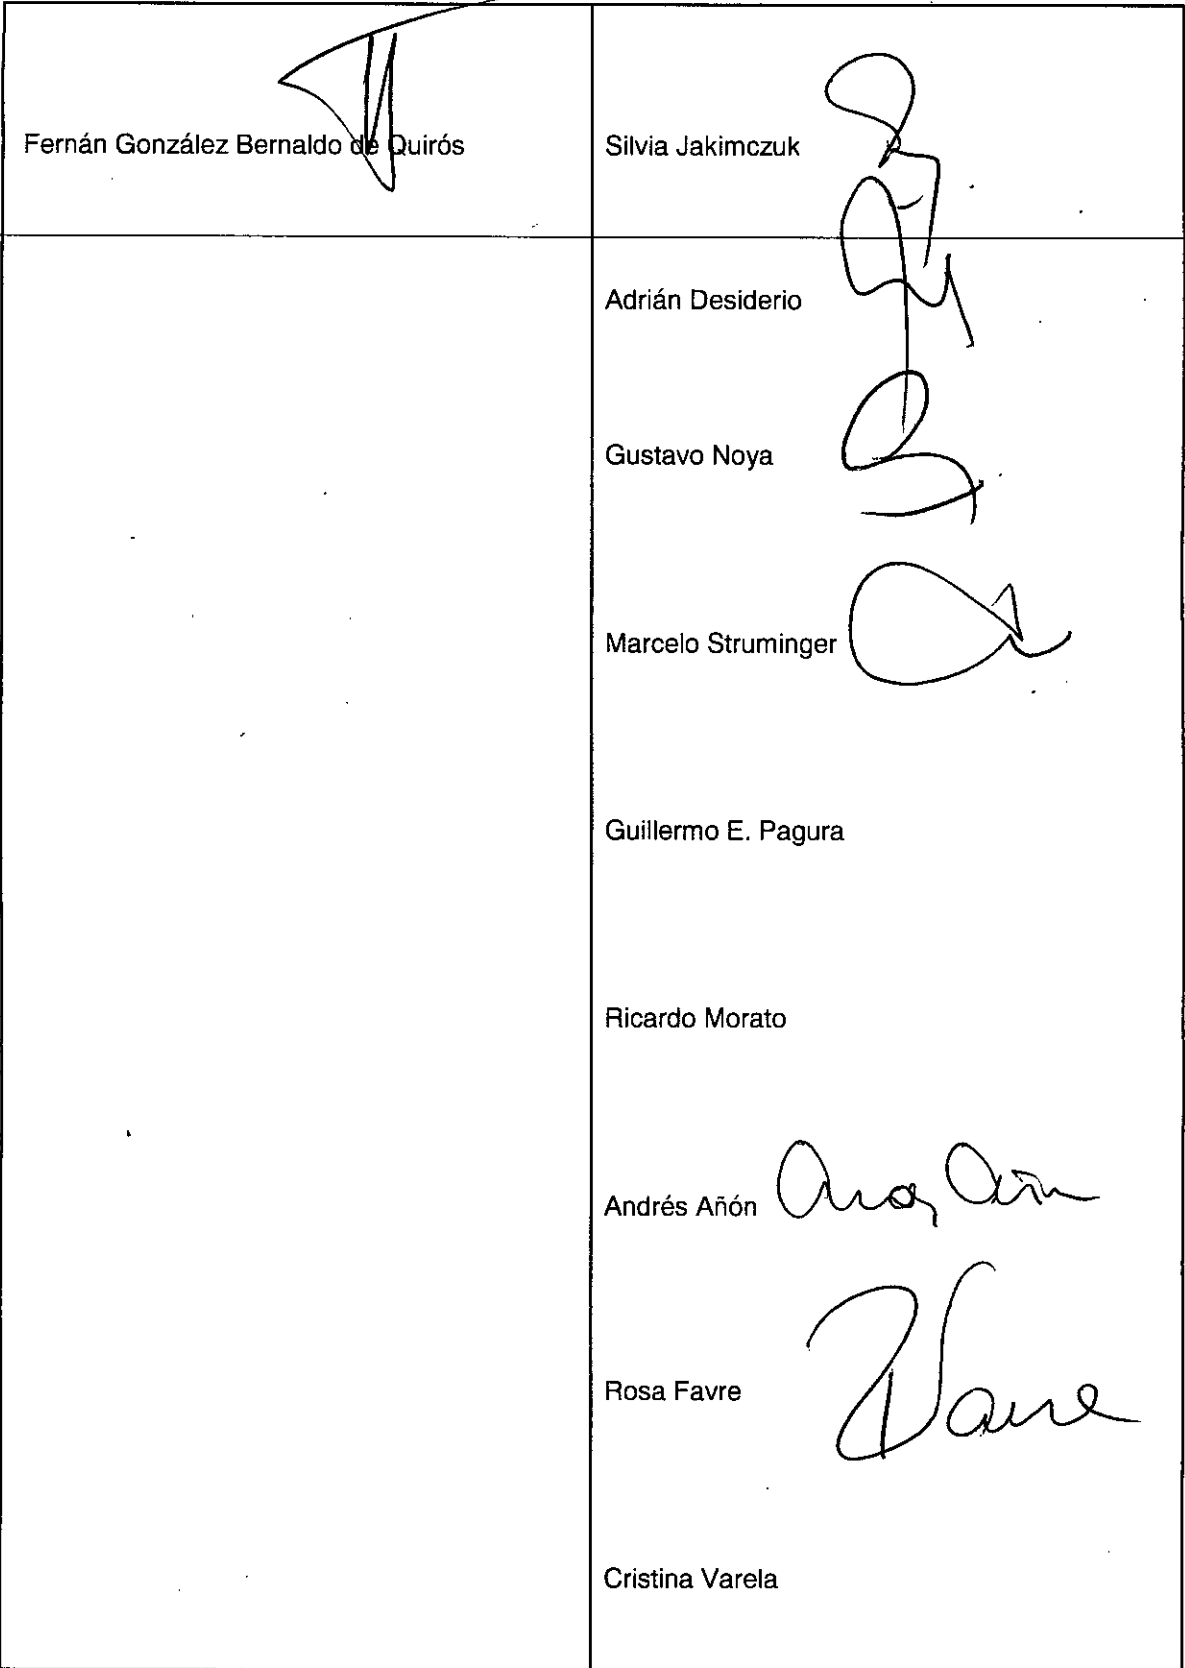 Fernán González Bernaldo de Quirós
Silvia Jakimczuk
Adrián Desiderio
Gustavo Noya
Marcelo Struminger
Guillermo E. Pagura
Ricardo Morato
Andrés Añón
Rosa Favre
Cristina Varela